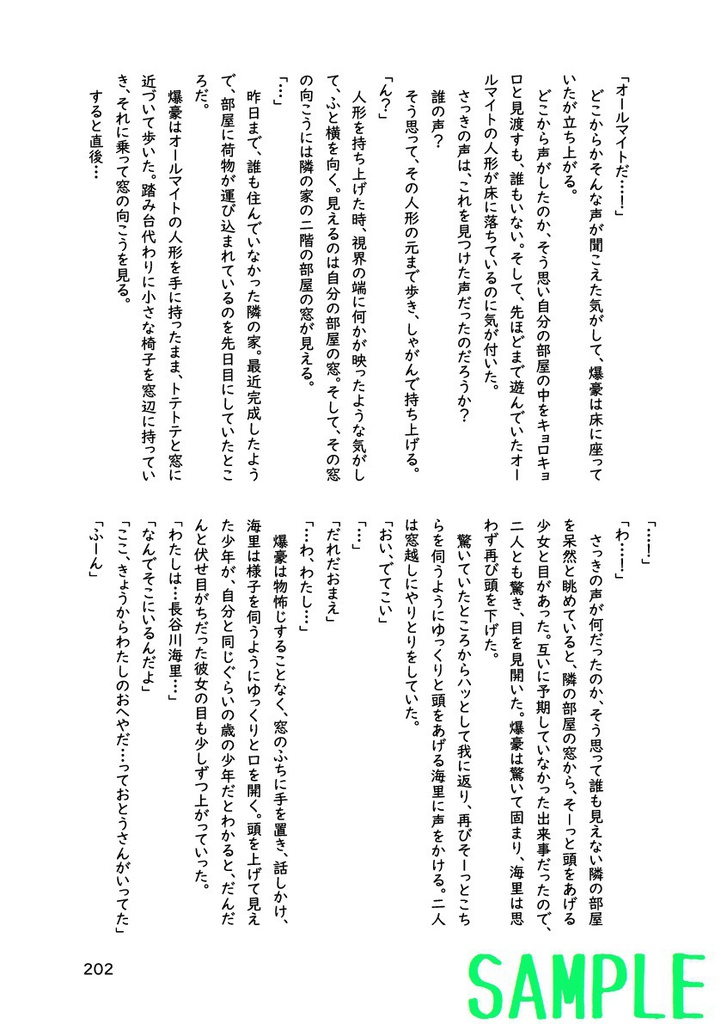 「オールマイトだ…！」
　どこからかそんな声が聞こえた気がして、爆豪は床に座って
いたが立ち上がる。
　どこから声がしたのか、そう思い自分の部屋の中をキョロキョ
ロと見渡すも、誰もいない。そして、先ほどまで遊んでいたオー
ルマイトの人形が床に落ちているのに気が付いた。
　さっきの声は、これを見つけた声だったのだろうか？
　誰の声？
　そう思って、その人形の元まで歩き、しゃがんで持ち上げる。
「ん？」
　人形を持ち上げた時、視界の端に何かが映ったような気がし
て、ふと横を向く。見えるのは自分の部屋の窓。そして、その窓
の向こうには隣の家の二階の部屋の窓が見える。
「…」
　昨日まで、誰も住んでいなかった隣の家。最近完成したよう
で、部屋に荷物が運び込まれているのを先日目にしていたとこ
ろだ。
　爆豪はオールマイトの人形を手に持ったまま、トテトテと窓に
近づいて歩いた。踏み台代わりに小さな椅子を窓辺に持ってい
き、それに乗って窓の向こうを見る。
　すると直後…
「…！」
「わ…！」
　さっきの声が何だったのか、そう思って誰も見えない隣の部屋
を呆然と眺めていると、隣の部屋の窓から、そーっと頭をあげる
少女と目があった。互いに予期していなかった出来事だったので、
二人とも驚き、目を見開いた。爆豪は驚いて固まり、海里は思
わず再び頭を下げた。
　驚いていたところからハッとして我に返り、再びそーっとこち
らを伺うようにゆっくりと頭をあげる海里に声をかける。二人
は窓越しにやりとりをしていた。
「おい、でてこい」
「…」
「だれだおまえ」
「…わ、わたし…」
　爆豪は物怖じすることなく、窓のふちに手を置き、話しかけ、
海里は様子を伺うようにゆっくりと口を開く。頭を上げて見え
た少年が、自分と同じぐらいの歳の少年だとわかると、だんだ
んと伏せ目がちだった彼女の目も少しずつ上がっていった。
「わたしは…長谷川海里…」
「なんでそこにいるんだよ」
「ここ、きょうからわたしのおへやだ…っておとうさんがいってた」
「ふーん」
202
SAMPLE